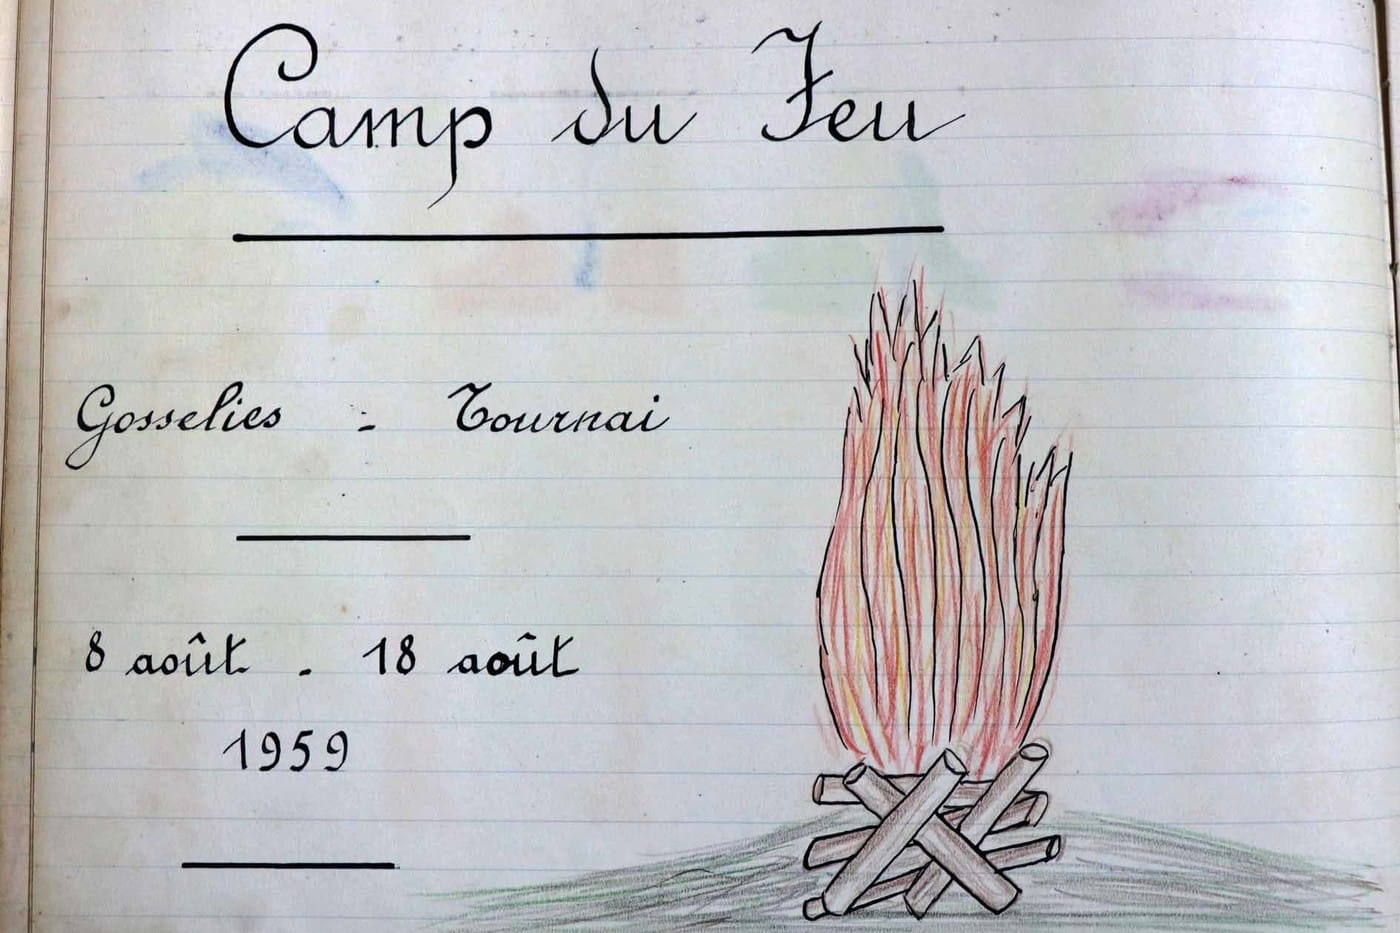 Camp du Feu
Gosselies - Tournai
8 août - 18 août
1959